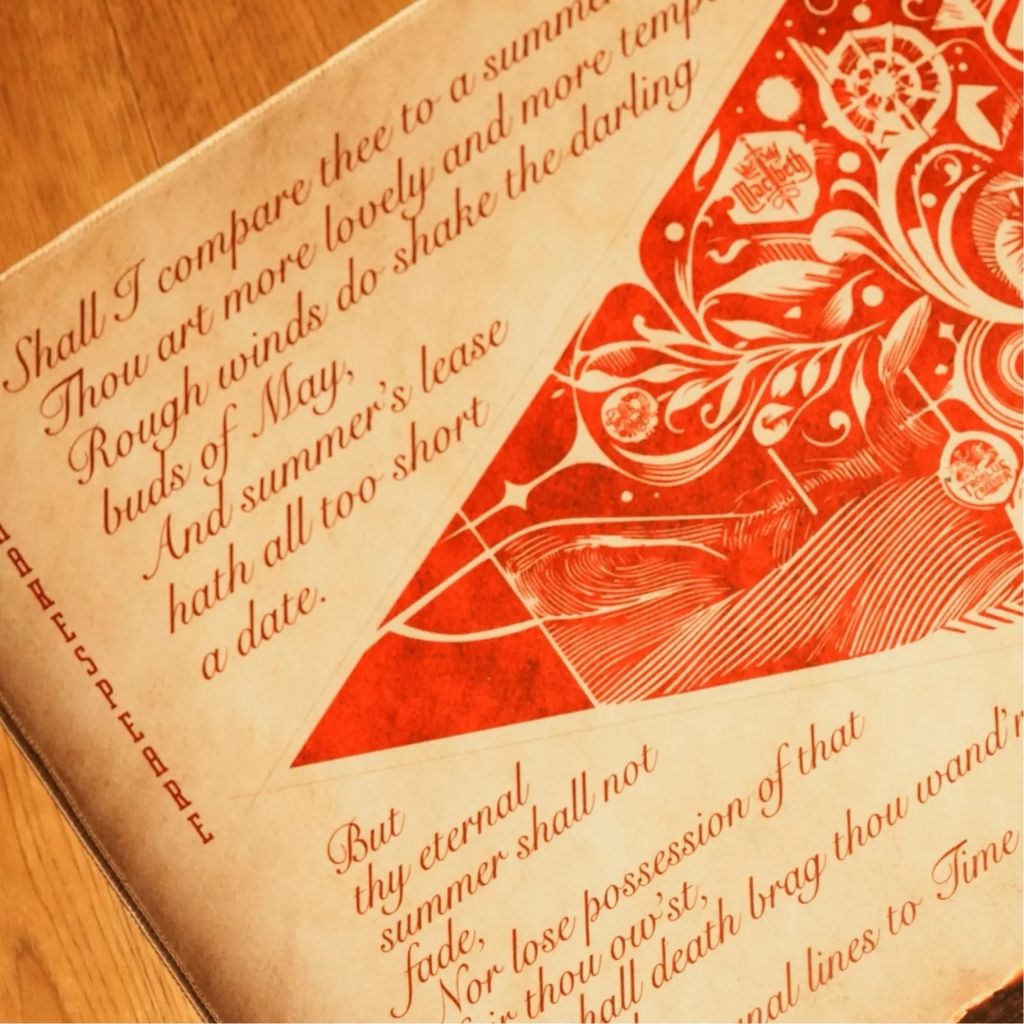 Shall I compare thee to a summe
Thou art more lovely and more temp
Rough winds do shake the darling
buds of May,
And summer's lease
hath all too short
a date.
AKESPEARE
Macbeth
But
thy eternal
summer shall not
fade,
Nor lose possession of that
ir thou ow'st,
hall death brag thou wand'r
nal lines to Time